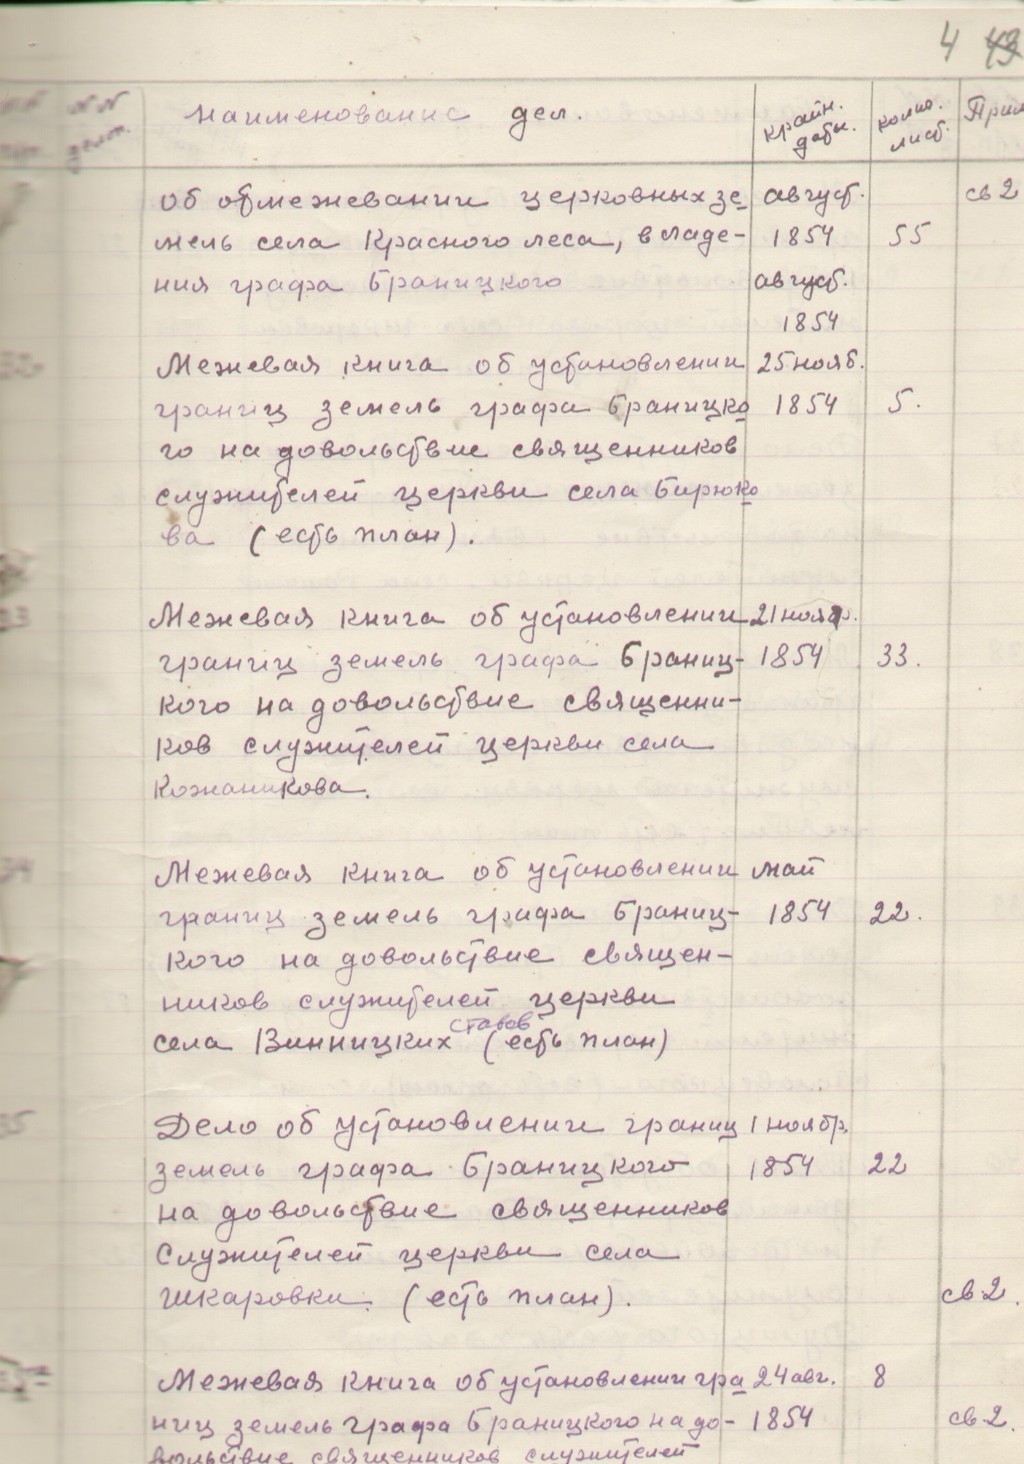 4 43
№№ Наименование дел. Крайн. даты. колич. лист. Прим
об обмежевании церковных зе август. св 2
мель села Красного леса, владе- 1854 55
ния графа Браницкого август.
1854
Межевая книга об установлении 25 нояб.
границ земель графа Браницко 1854 5.
го на довольствие священников
служителей церкви села Бирюко
ва (есть план).
33 Межевая книга об установлении 21 ноябр.
границ земель графа Браниц- 1854 33.
кого на довольствие священни-
ков служителей церкви села
Кожаникова.
34 Межевая книга об установлении май
границ земель графа Браниц- 1854 22.
кого на довольствие священ-
ников служителей церкви
села Винницких ставов (есть план)
35 Дело об установлении границ 1 ноябр.
земель графа Браницкого 1854 22
на довольствие священников
Служителей церкви села
Шкаровки. (есть план). св 2.
Межевая книга об установлении гра 24 авг. 8
ниц земель графа Браницкого на до- 1854 св 2.
вольствие священников служителей